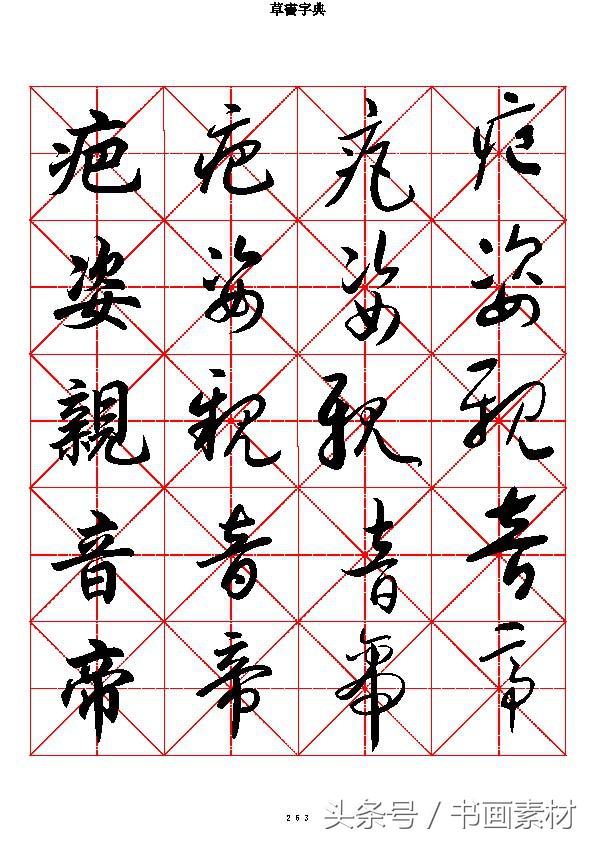 草書字典
疤疤疤疤
姿姿姿姿
親親親親
音音音音
帝帝帝帝
263
头条号 / 书画素材